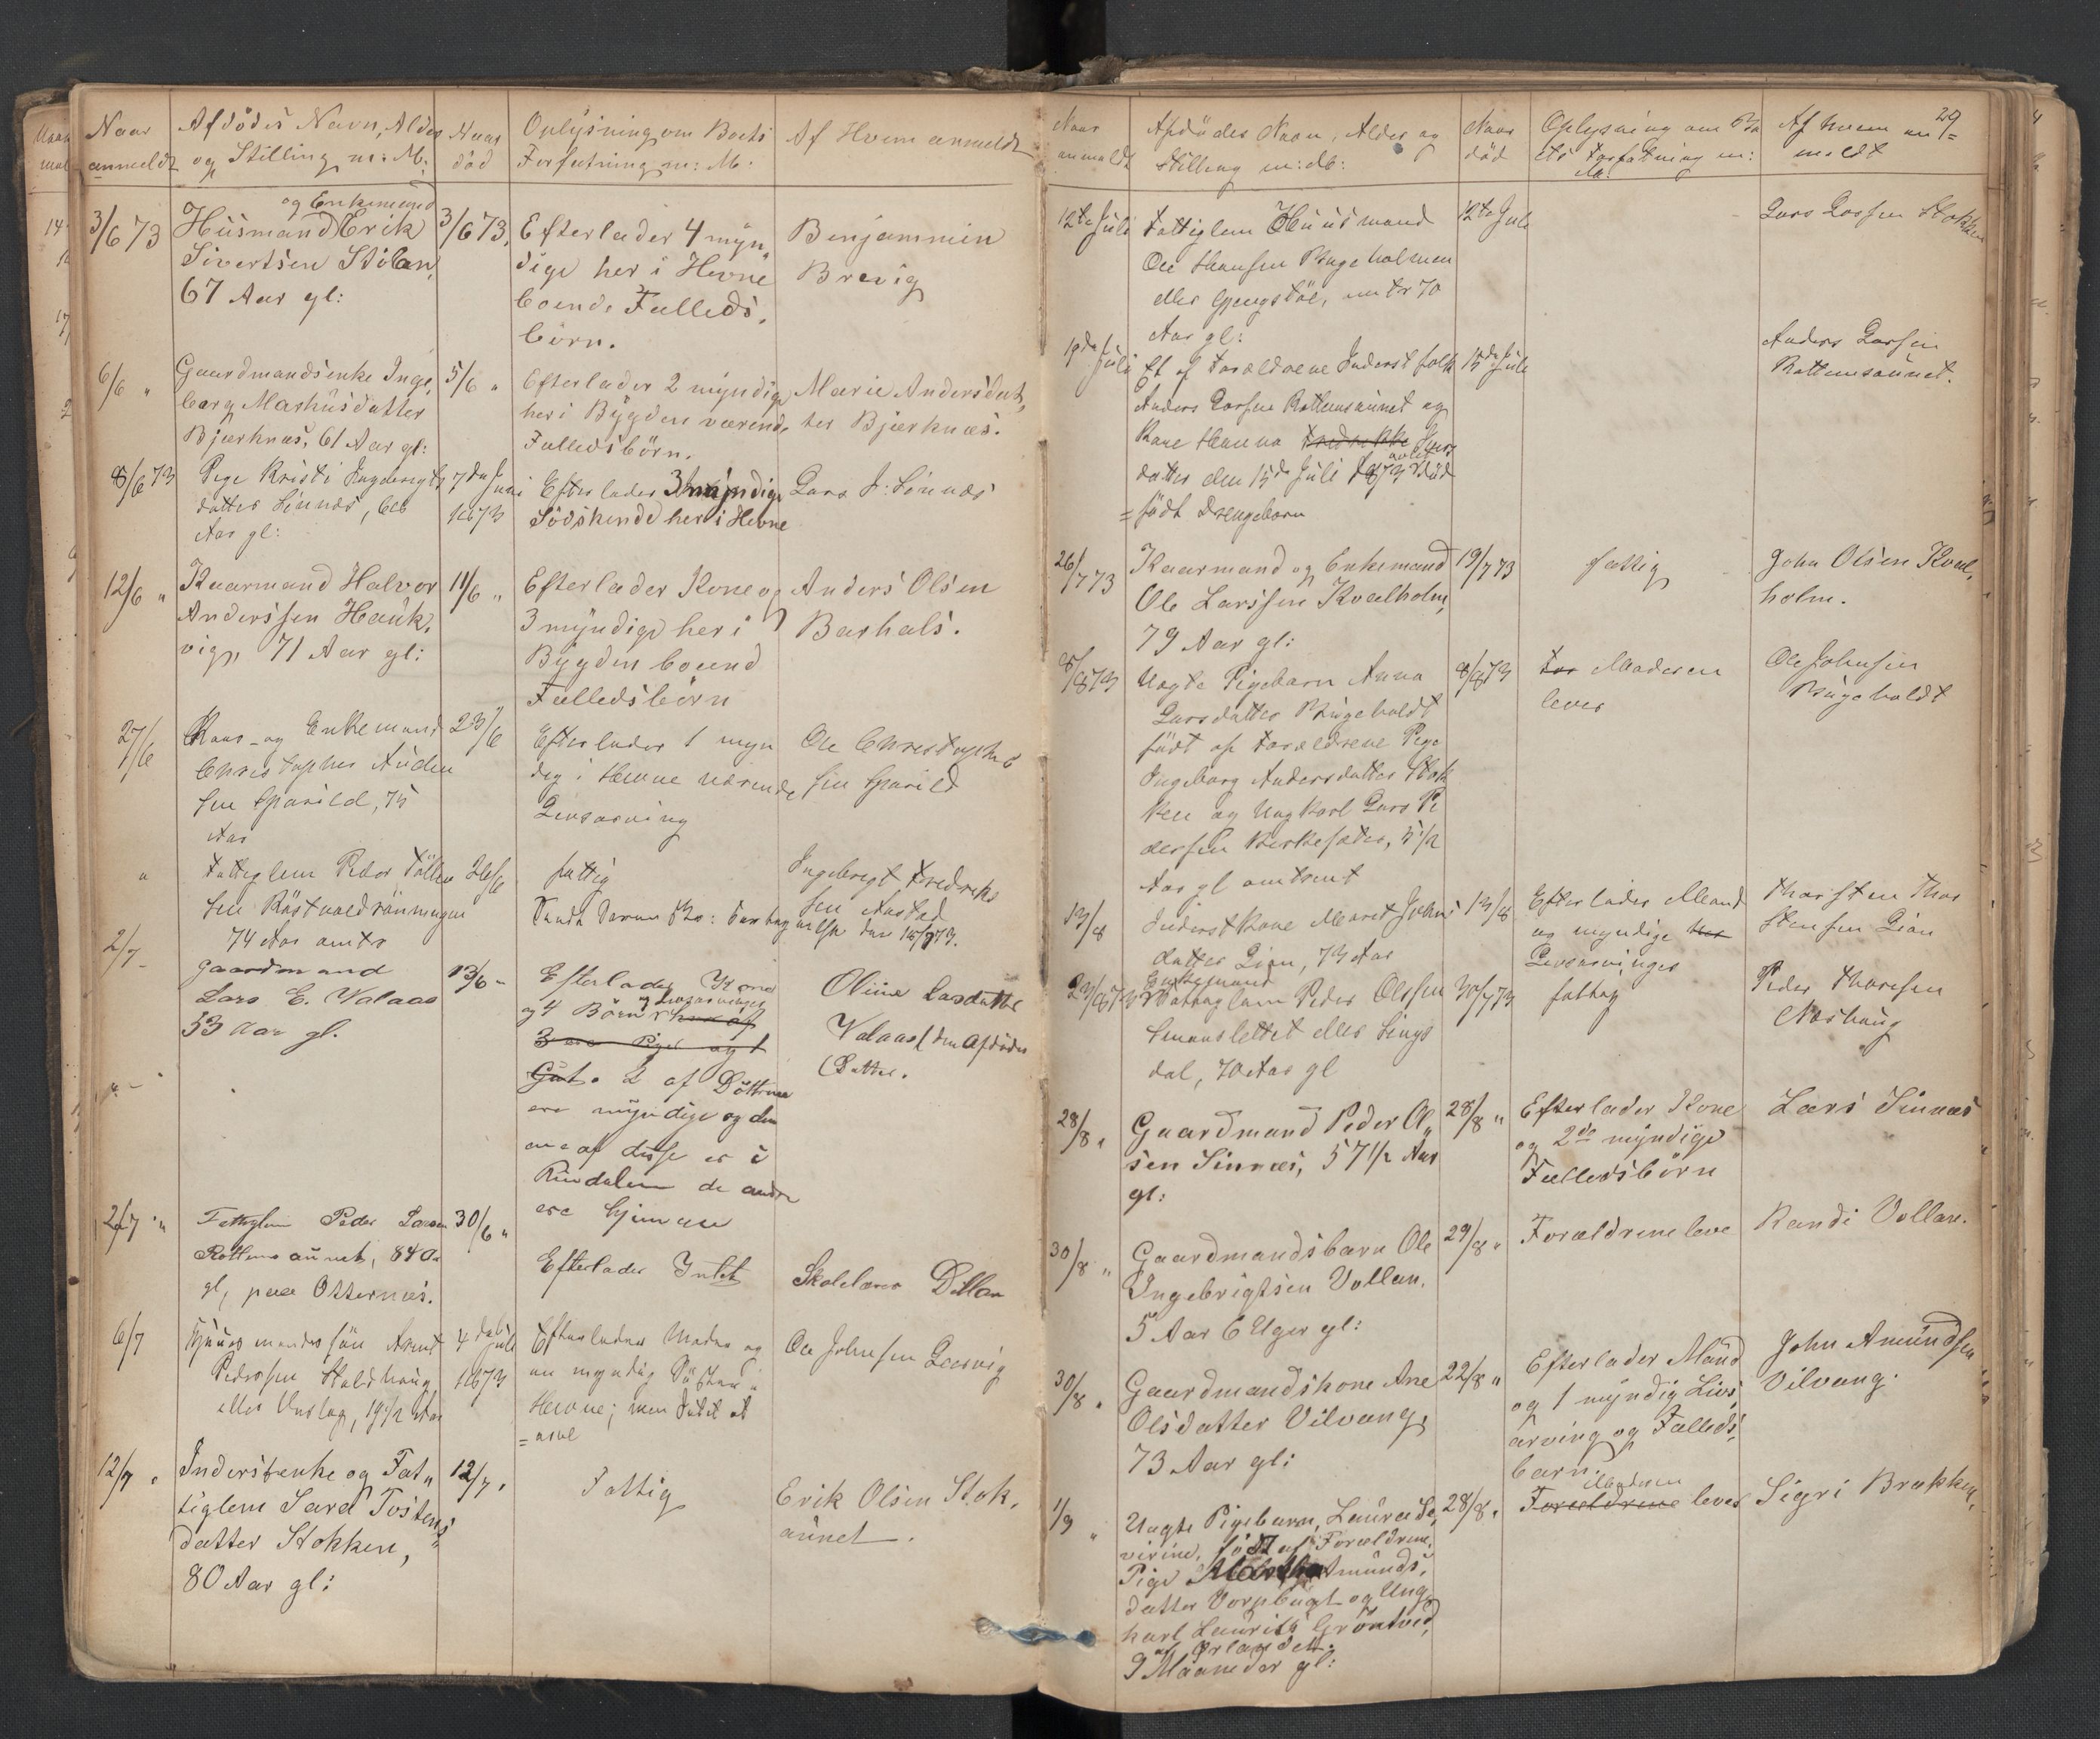 Naar
anmeldt
Afdödes Navn, Alder
og Stilling m: M:
Naar
död
Oplysning om Boets
Forfatning m: M:
Af Hvem anmeldt
3/6 73
og Enkemand
Husmand Erik
Sivertsen Stölan,
67 Aar gl:
3/6 73,
Efterlader 4 myn
dige her i Hevne
boende Fælleds
börn.
Benjammin
Brevig
6/6 "
Gaardmandsenke Inge
borg Markusdatter
Bjærknæs, 61 Aar gl:
5/6 "
Efterlader 2 myndige
her i Bygden værende
Fælledsbörn.
Marie Andersdat
ter Bjærknæs.
8/6 73
Pige Kristi Ingebrigts
datter Sinnæs, 66
Aar gl:
7de Juni
1873
Efterlader 3 myndige
Södskende her i Hevne
Lars J. Sinnæs
12/6 "
Kaarmand Halvor
Anderssen Hauk
vig, 71 Aar gl:
11/6 "
Efterlader Kone og
3 myndige her i
Bygden boend
Fælledsbörn
Anders Olsen
Barhals.
27/6
Kaar- og Enkemand
Christopher Auden
sen Sparild, 75
Aar
23/6
Efterlader 1 myn
dig i Hevne værende
Livsarving
Ole Christophe
sen Sparild
"
Fattiglem Peder
sen Röstvoldrönningen
74 Aar omtr
26/6
fattig
den 15/7 73.
Ingebrigt Fredriks
sen Aastad
2/7 -
Gaardmand
Lars E. Valaas
53 Aar gl.
13/6 -
Efterlader Kone
og Livsarvinger
og 4 Börn hvoraf
3 ere Piger og 1
Gut. 2 af Döttrene
ere myndige og den
ene af disse er i
Rindalen de andre
ere hjemme
Oline Larsdatter
Valaas (den Afdödes
Datter.
2/7 "
Fattiglem Peder Larsen
Rottemsaunet, 84 Aar
gl, paa Otternæs.
30/6 "
Efterlader Intet
Skolelærer Dillan
6/7
Huusmandssön Arnt
Pedersen Stoldhaug
eller Vaslag, 19 1/2 Aar
4de Juli
1873
Efterlader Moder og
en myndig Söster i
Hevne; men Intet at
= arve
Ole Johnsen Lervig
12/7 "
Inderstenke og Fat"
tiglem Sara Tostens
datter Stokken,
80 Aar gl:
12/7 "
Fattig
Erik Olsen Stok,
aunet.
29
Naar
anmeldt
Afdödes Navn, Alder og
Stilling m: M:
Naar
död
Oplysning om Bo
ets Forfatning m:
M:
Af hvem an
meldt
12te Juli
Fattiglem Huusmand
Ole Hansen Bugeholmen
eller Gjengstöe, omtr 70
Aar gl:
12te Juli
Lars Larsen Stokken
19de Juli
Et af Forældrene Inderstfolk
Anders Larsen Rottemsaunet og
Kone Hanna Fredrikke Iver
datter den 15de Juli 1873 död
= födt Drengebarn
15de Juli
Anders Larsen
Rottemsaunet.
26/7 73
Kaarmand og Enkemand
Ole Larssen Kvalholm,
79 Aar gl:
19/7 73
fattig
John Olsen Kval,
holm.
8/8 73
Uægte Pigebarn Anna
Larsdatter Bugeholdt
födt af Forældrene Pige
Ingeborg Andersdatter Stok
ken og Ungkarl Lars Pe
dersen Kirkesæter, 5 1/2
Aar gl omtrent
8/8 73
For Moderen
lever
Ole Johnsen
Bugeholdt
13/8
Inderstkone Maret Johns
datter Lian, 73 Aar
13/8
Efterlader Mand
og myndige her
Livsarvinger
Thorsten Thor
stensen Lian
23/8 73
Enkemand
Fattiglem Peder Olssen
Smenslettet eller Lings
dal, 70 Aar gl
30/7 73
fattig
Peder Thoresen
Næshaug
28/8 "
Gaardmand Peder O"
sen Sinnæs, 57 1/2 Aar
gl:
28/8 "
Efterlader Kone
og 2de myndige
Fælledsbörn
Lars Sinnæs
30/8 "
Gaardmandsbarn Ole
Ingebrigtsen Vollan.
5 Aar 6 Uger gl:
29/8 "
Forældrene leve
Randi Vollan.
30/8 "
Gaardmandskone Ane
Olsdatter Vilvang,
73 Aar gl:
22/8 "
Efterlader Mand
og 1 myndig Livs,
arving og Fælleds,
barn.
John Amundsen
Vilvang.
1/9 "
Uægte Pigebarn, Laura Se,
virine, födt af Forældrene,
Pige Amunds,
datter Vorpbugt og Ung,
karl Laurits Gröntved,
af Ørlandet.
9 Maaneder gl:
28/8 "
Moderen
Forældrene lever
Sigri Brækken,